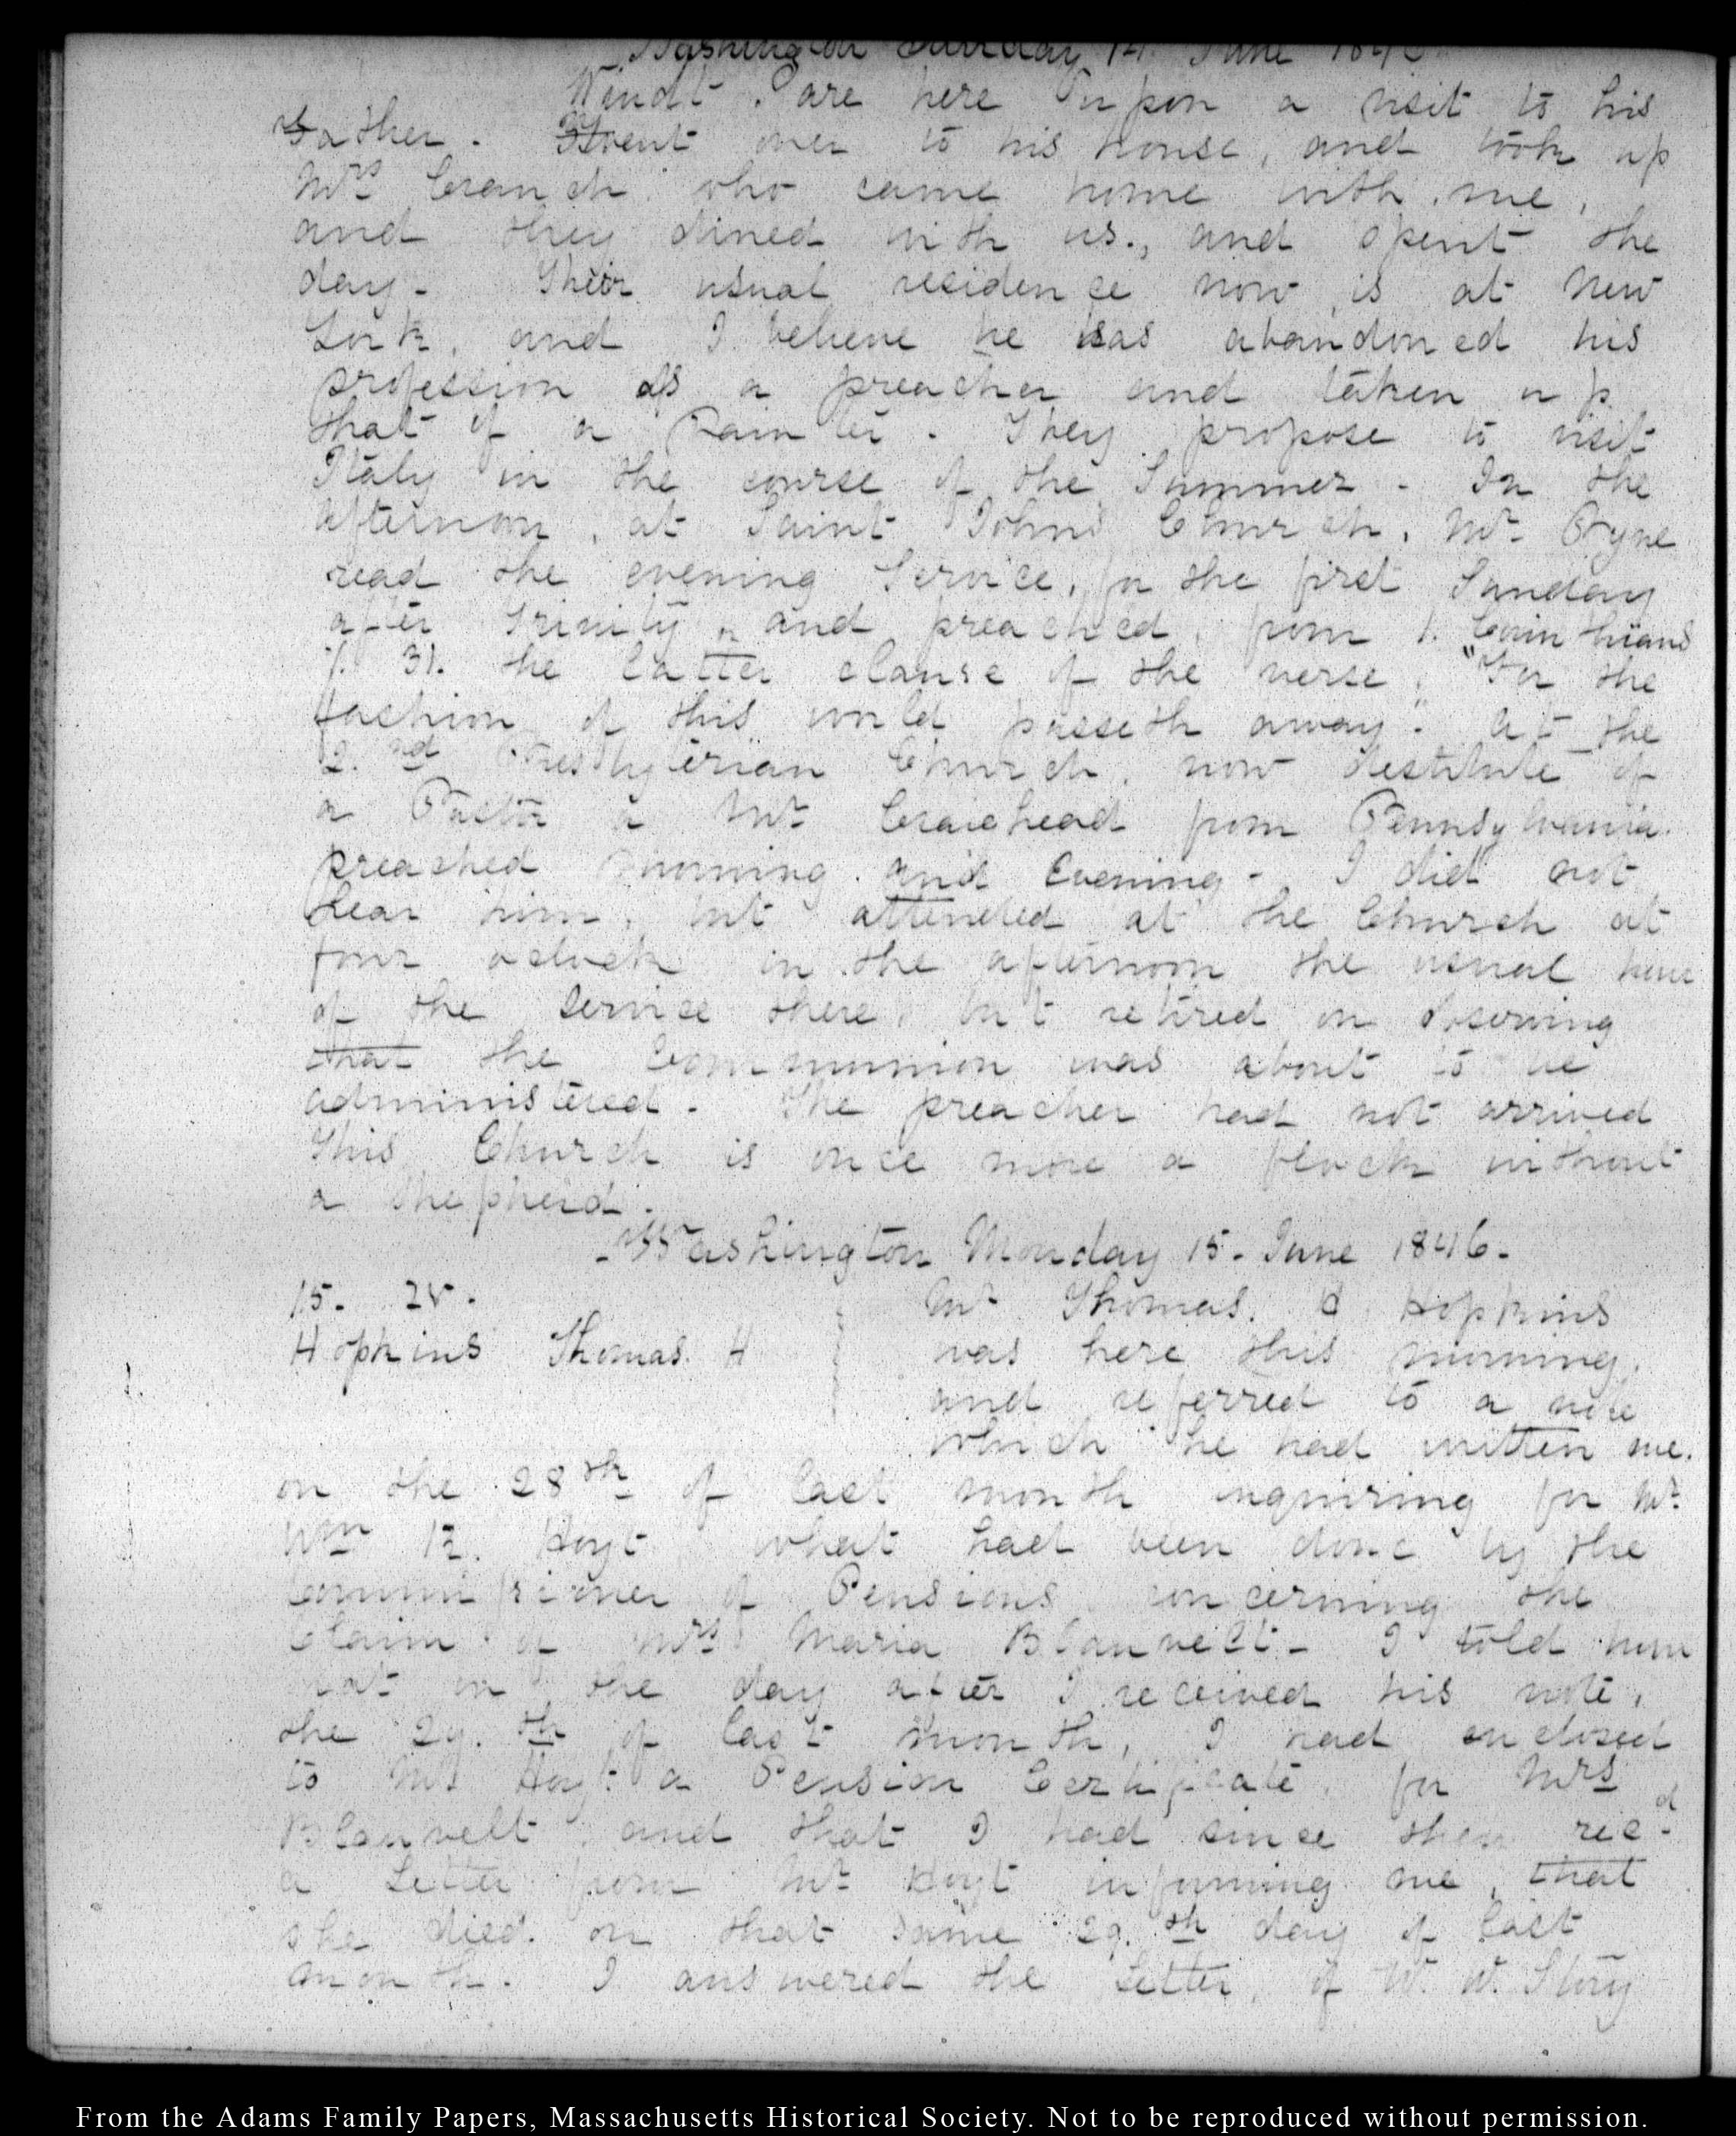 Washington Sunday 14. June 1846
Windt. are here upon a visit to his
Father. I went over to his house, and took up
Mrs Cranch who came home with me,
and they dined with us., and spent the
day- Their usual residence now is at New
York, and I believe he has abandoned his
profession as a preacher and taken up
that of a Painter. They propose to visit
Italy in the course of the Summer- In the
afternoon, at Saint Johns Church, Mr Pyne
read the evening Service, for the first Sunday
after Trinity, and preached, from 1. Corinthians
7. 31. the latter clause of the verse, "For the
fashion of this world passeth away." At the
2.nd Presbyterian Church, now destitute of
a Pastor a Mr Craiehead from Pennsylvania.
preached morning and Evening- I did not
hear him, but attended at the Church at
four oclock in the afternoon the usual hour
of the Service there, but retired on observing
that the Communion was about to be
administered- The preacher had not arrived
This Church is once more a flock without
a shepherd.
-Washington Monday 15- June 1846-
15. 25.
Hopkins Thomas. H
Mr Thomas. Hopkins
was here this morning,
and referred to a note
which he had written me.
on the 28th of last month inquiring for Mr
Wm 12. Hoyt what had been done by the
Commissioner of Pensions concerning the
Claim of Mrs Maria Blauvelt- I told him
that on the day after I received his note,
the 29.th of last month, I had enclosed
to Mr Hoyt a Pension Certificate, for Mrs
Blauvelt and that I had since then recd
a Letter from Mr Hoyt informing me, that
she died on that same 29.th day of last
month. I answered the Letter, of W. W. Story
From the Adams Family Papers, Massachusetts Historical Society. Not to be reproduced without permission.